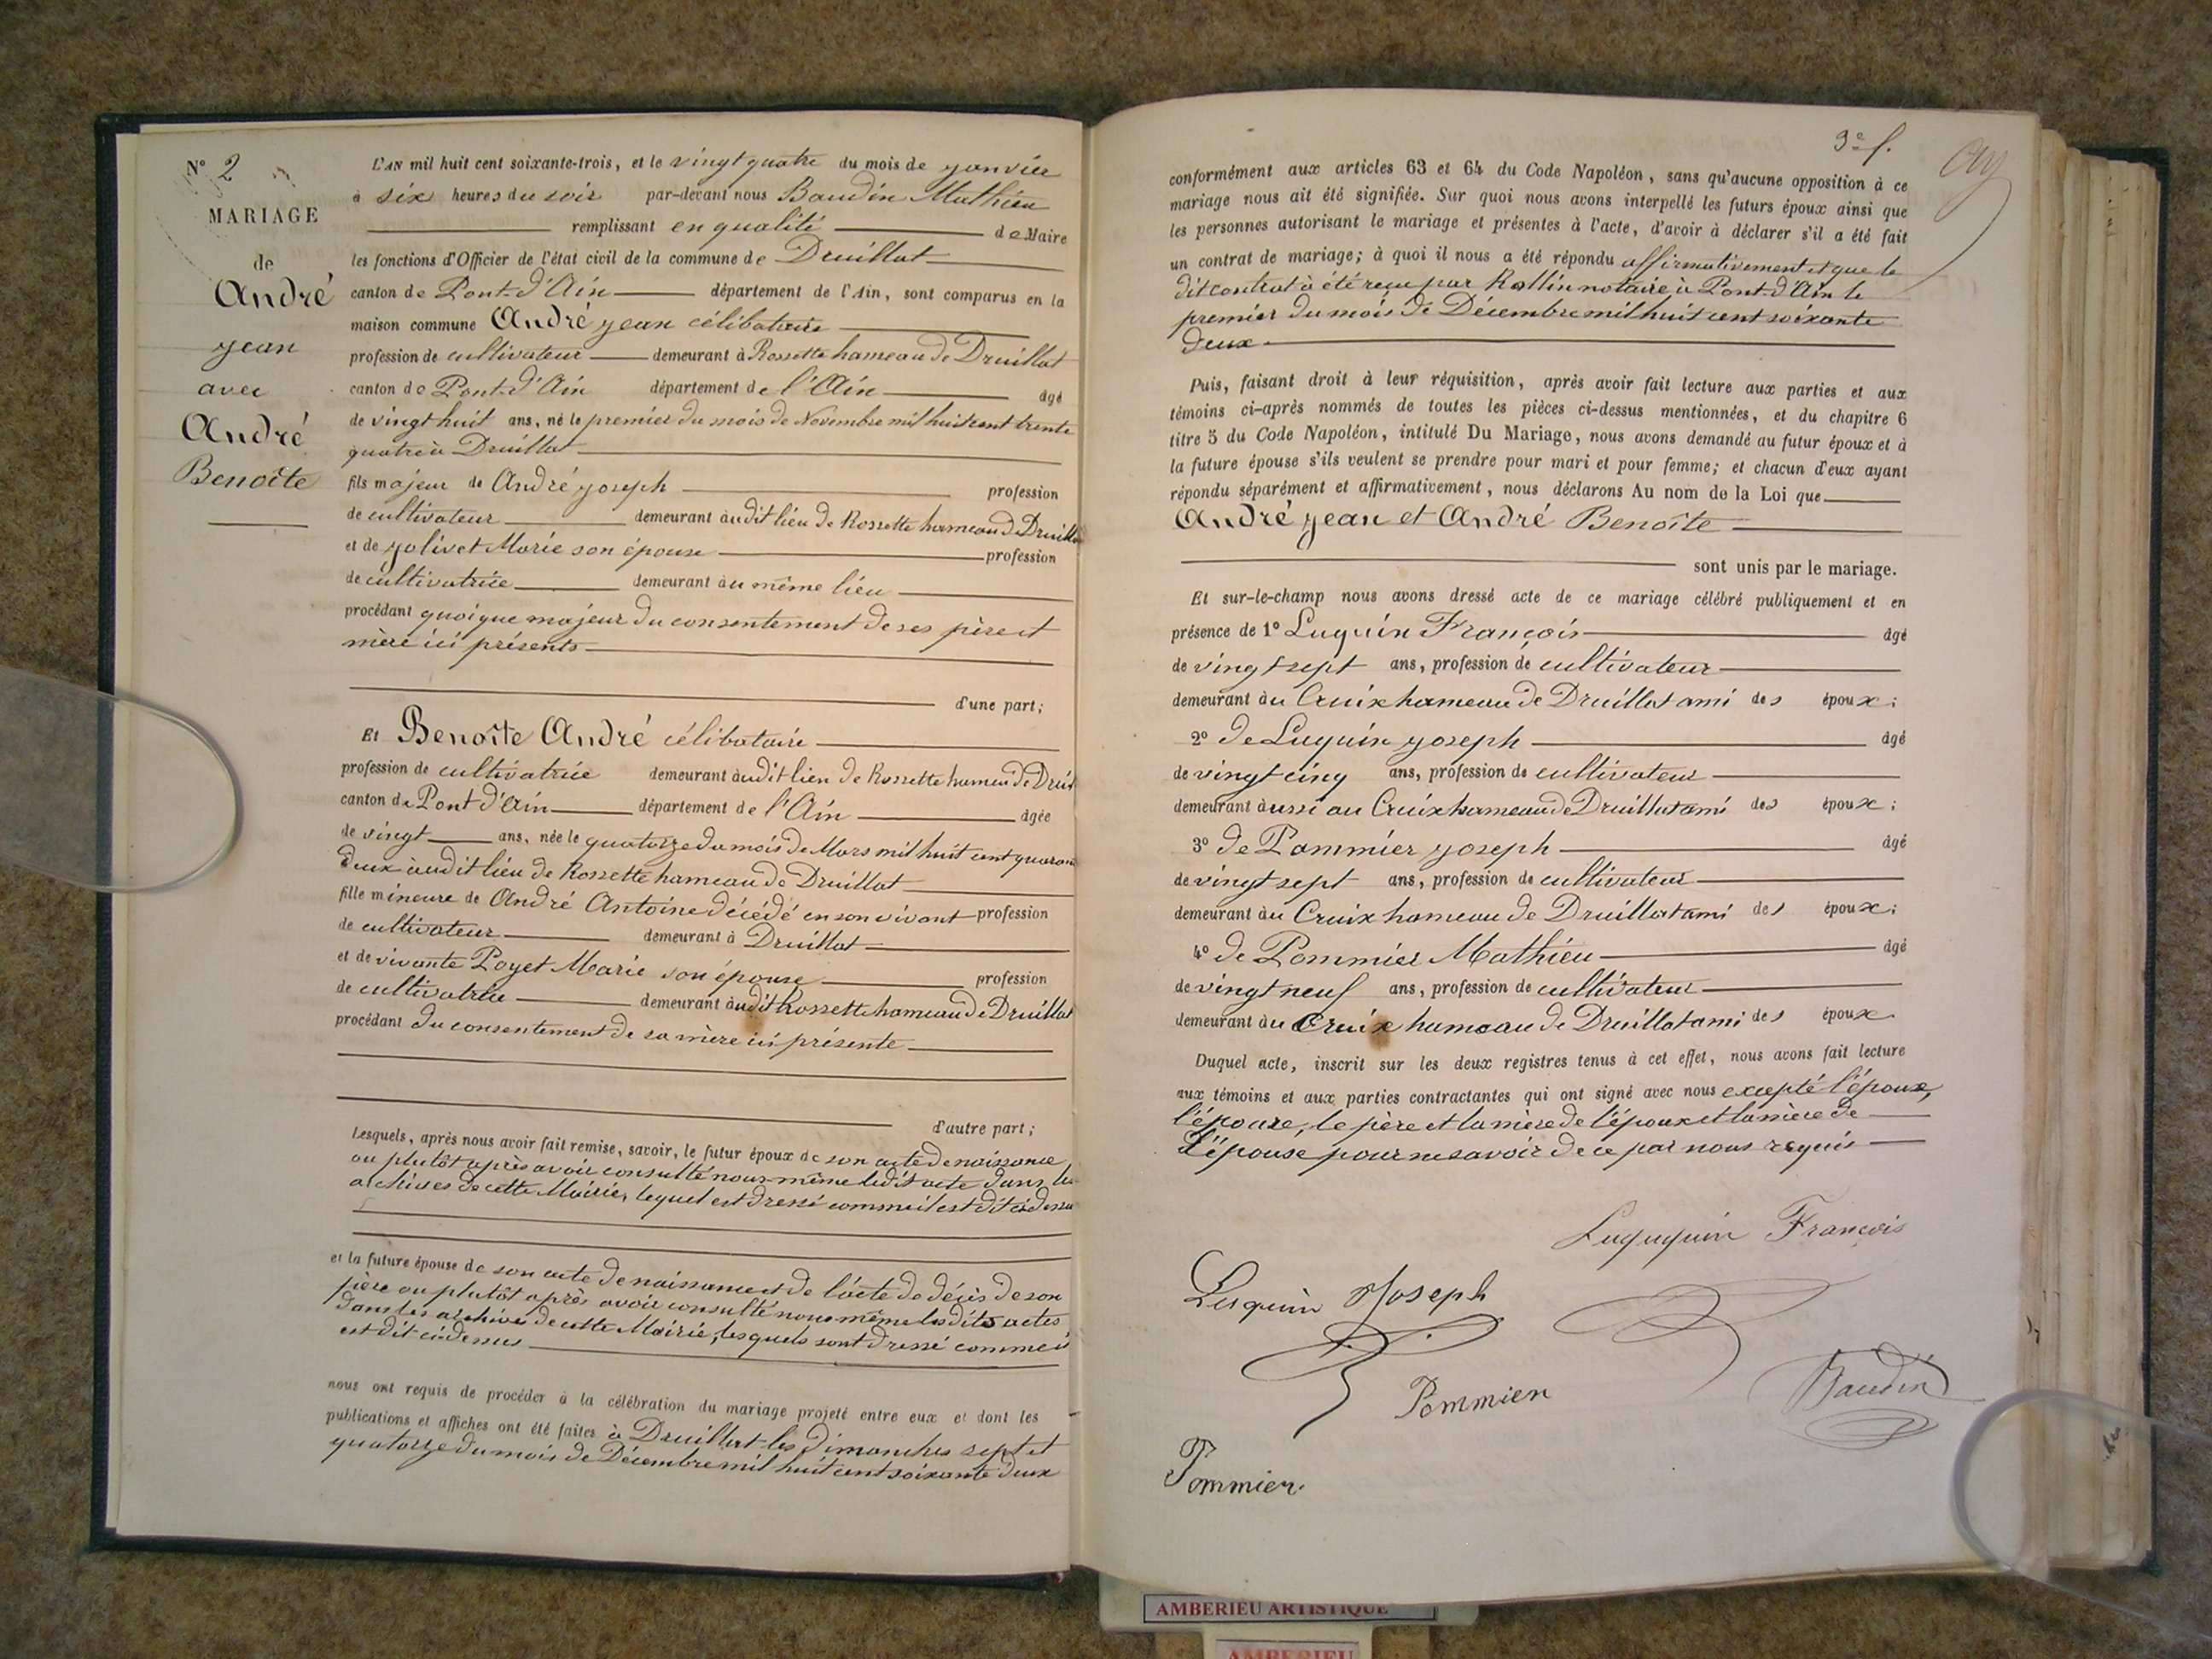 N° 2
MARIAGE
de
André
jean
avec
André
Benoîte
L'AN mil huit cent soixante-trois, et le vingt quatre du mois de janvier
à six heures du soir par-devant nous Baudin Mathieu
remplissant en qualité de Maire
les fonctions d'Officier de l'état civil de la commune de Druillat
canton de Pont-d'Ain département de l'Ain, sont comparus en la
maison commune André jean célibataire
profession de cultivateur demeurant à Rossette hameau de Druillat
canton de Pont-d'Ain département de l'Ain âgé
de vingt huit ans, né le premier du mois de Novembre mil huit cent trente
quatre à Druillat
fils majeur de André joseph profession
de cultivateur demeurant àudit lieu de Rossette hameau de Druillat
et de jolivet Marie son épouse profession
de cultivatrice demeurant àu même lieu
procédant quoique majeur du consentement de ses père et
mère ici présents
d'une part;
Et Benoîte André célibataire
profession de cultivatrice demeurant àudit lieu de Rossette hameau de Druil
canton de Pont d'Ain département de l'Ain âgée
de vingt ans, née le quatorze du mois de Mars mil huit cent quarante
deux àudit lieu de Rossette hameau de Druillat
fille mineure de André Antoine décédé en son vivant profession
de cultivateur demeurant à Druillat
et de vivante Poyet Marie son épouse profession
de cultivatrice demeurant àudit Rossette hameau de Druillat
procédant du consentement de sa mère ici présente
d'autre part;
Lesquels, après nous avoir fait remise, savoir, le futur époux de son acte de naissance
ou plutôt après avoir consulté nous-même ledit acte dans les
archives de cette Mairie, lequel est dressé comme il est dit cidessus
et la future épouse de son acte de naissance et de l'acte de décès de son
père ou plutôt après avoir consulté nous-même lesdits actes
dans les archives de cette Mairie, lesquels sont dressé comme il
est dit cidessus
nous ont requis de procéder à la célébration du mariage projeté entre eux et dont les
publications et affiches ont été faites à Druillat les dimanches sept et
quatorze du mois de Décembre mil huit cent soixante deux
3e f.
conformément aux articles 63 et 64 du Code Napoléon, sans qu'aucune opposition à ce
mariage nous ait été signifiée. Sur quoi nous avons interpellé les futurs époux ainsi que
les personnes autorisant le mariage et présentes à l'acte, d'avoir à déclarer s'il a été fait
un contrat de mariage; à quoi il nous a été répondu affirmativement et que le
dit contrat à été reçu par Rollin notaire à Pont-d'Ain le
premier du mois de Décembre mil huit cent soixante
deux
Puis, faisant droit à leur réquisition, après avoir fait lecture aux parties et aux
témoins ci-après nommés de toutes les pièces ci-dessus mentionnées, et du chapitre 6
titre 5 du Code Napoléon, intitulé Du Mariage, nous avons demandé au futur époux et à
la future épouse s'ils veulent se prendre pour mari et pour femme; et chacun d'eux ayant
répondu séparément et affirmativement, nous déclarons Au nom de la Loi que
André jean et André Benoîte
sont unis par le mariage.
Et sur-le-champ nous avons dressé acte de ce mariage célébré publiquement et en
présence de 1° Luquin François âgé
de vingt sept ans, profession de cultivateur
demeurant àu Cruix hameau de Druillat ami des époux;
2° de Luquin joseph âgé
de vingt cinq ans, profession de cultivateur
demeurant àussi au Cruix hameau de Druillat ami des époux;
3° de Pommier joseph âgé
de vingt sept ans, profession de cultivateur
demeurant àu Cruix hameau de Druillat ami des époux;
4° de Pommier Mathieu âgé
de vingt neuf ans, profession de cultivateur
demeurant àu Cruix hameau de Druillat ami des époux
Duquel acte, inscrit sur les deux registres tenus à cet effet, nous avons fait lecture
aux témoins et aux parties contractantes qui ont signé avec nous excepté l'époux,
l'épouse, le père et la mère de l'époux et la mère de
l'épouse pour ne savoir de ce par nous requis
Luququin François
Luquin Joseph
Baudin
Pommier
Pommier.
AMBERIEU ARTISTIQUE
AMBERIEU